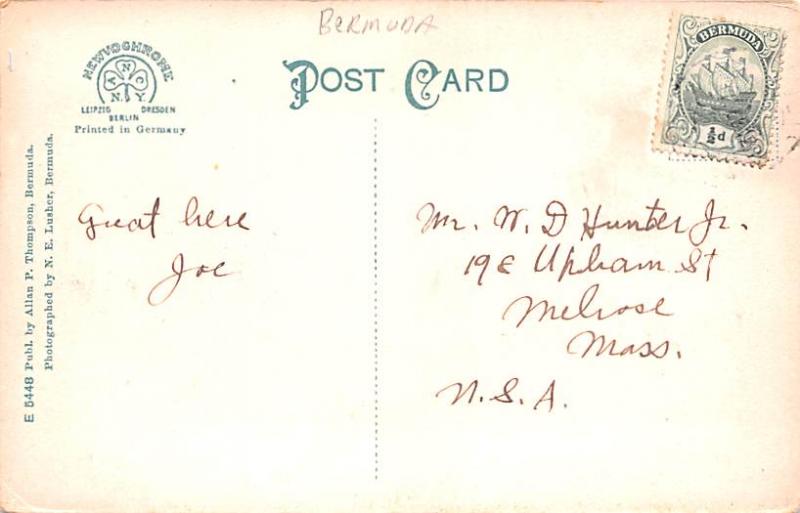 BERMUDA
POST CARD
NEWVOCHROME
ANCO
N.Y.
LEIPZIG DRESDEN
BERLIN
Printed in Germany
BERMUDA
½d
E 5448 Publ. by Allan P. Thompson, Bermuda.
Photographed by N. E. Lusher, Bermuda.
Great here
Joe
Mr. W. D Hunter Jr.
19 E Upham St
Melrose
Mass.
U.S.A.